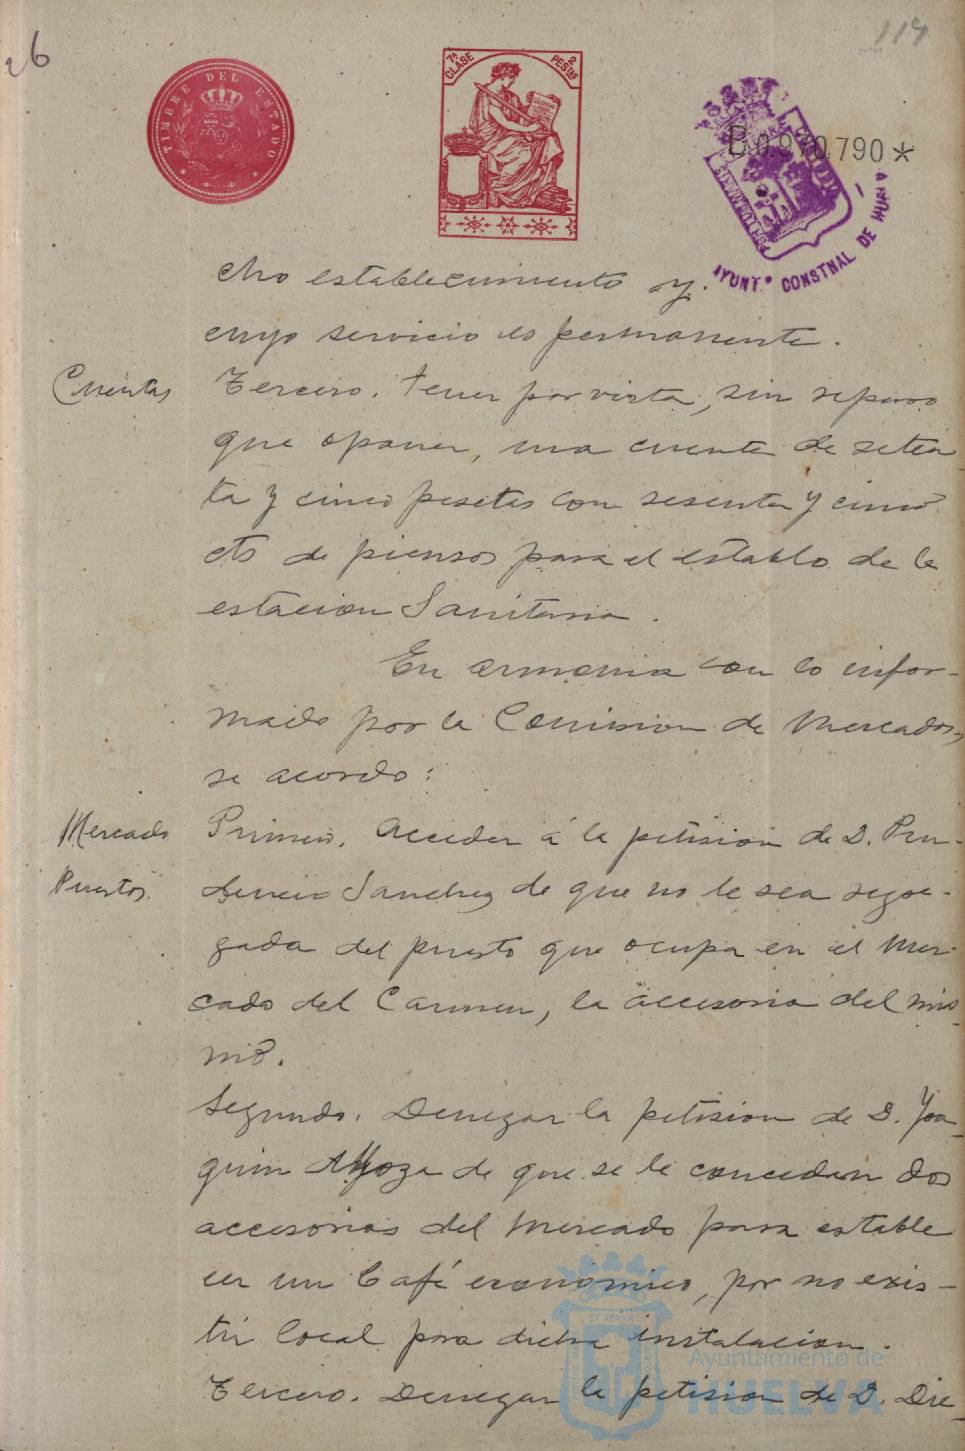 26
114
TIMBRE DEL ESTADO
7ª CLASE
2 PESTAS
B 0.970,790 *
AYUNTº CONSTNAL DE HUELVA
cho establecimiento y
cuyo servicio es permanente.
Cuentas
Tercero. tener por vista, sin reparo
que oponer, una cuenta de seten
ta y cinco pesetas con sesenta y cinco
cts de piensos para el establo de la
estacion Sanitaria.
En armonia con lo infor-
mado por la Comision de Mercados,
se acordo:
Mercado
Puestos.
Primero. Acceder á la petision de D. Pru-
dencio Sanchez de que no le sea segre-
gada del puesto que ocupa en el Mer-
cado del Carmen, la accesoria del mis-
mo.
Segundo. Denegar la petision de D. Joa-
quin de que se le concedan dos
accesorias del Mercado para estable
cer un Café economico, por no exis-
tir local para dicha instalacion.
Tercero. Denegar la petision de D. Die-
Ayuntamiento de
HUELVA